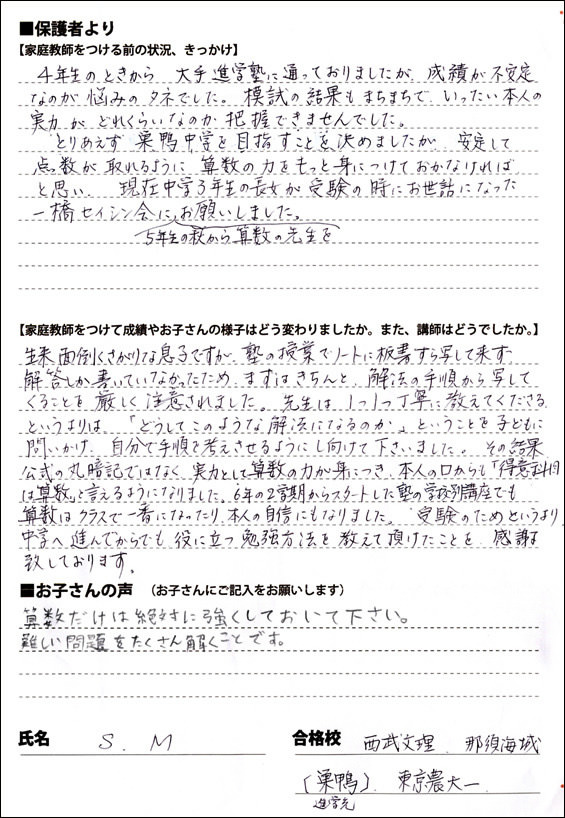 ■保護者より
【家庭教師をつける前の状況、きっかけ】
4年生のときから 大手進学塾に通っておりましたが、成績が不安定
なのが悩みのタネでした。模試の結果もまちまちで、いったい本人の
実力がどれくらいなのか把握できませんでした。
とりあえず巣鴨中学を目指すことを決めましたが、安定して
点数が取れるように 算数の力をもっと身につけておかなければ
と思い、現在中学3年生の長女が受験の時にお世話になった
一橋セイシン会に、お願いしました。
5年生の秋から算数の先生を
【家庭教師をつけて成績やお子さんの様子はどう変わりましたか。また、講師はどうでしたか。】
生来面倒くさがりな息子ですが、塾の授業でノートに板書すら写して来ず
解答しか書いていなかったため、まずはきちんと、解法の手順から写して
くることを厳しく注意されました。先生は1つ1つ丁寧に教えてくださる
というよりは、「どうしてこのような解法になるのか。」ということを子どもに
問いかけ、自分で手順を考えさせるようにし向けて下さいました。その結果
公式の丸暗記ではなく、実力として算数の力が身につき、本人の口からも「得意科目
は算数」と言えるようになりました。6年の2学期からスタートした塾の学校別講座でも
算数はクラスで一番になったり、本人の自信にもなりました。受験のためというより
中学へ進んでからでも、役に立つ勉強方法を教えて頂けたことを、感謝
致しております。
■お子さんの声 （お子さんにご記入をお願いします）
算数だけは絶対に強くしておいて下さい。
難しい問題をたくさん解くことです。
氏名 S. M 合格校 西武文理、那須海城
〔巣鴨〕、東京農大一
進学先